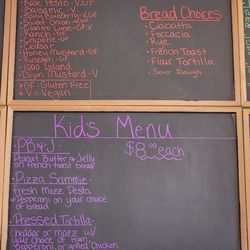 Kale Pesto - V, GF
Balsamic - V
Spicy Blueberry - V, GF
Sweet Onion - GF
Giant Lime - V, GF
Ranch - GF
Chipotle - GF
Ceasar
Honey Mustard - GF
Russian - GF
1000 Island
Dijon Mustard - V
GF = Gluten Free
V = Vegan
Bread Choices
- Ciabatta
- Foccacia
- Rye
- French Toast
- Flour Tortilla
- Sour Dough
Kid's Menu
$8.00 each
- PB & J -
Peanut Butter & Jelly
on french toast bread
- Pizza Sammie -
Fresh Mozz, Pesto,
& Pepperoni on your choice
of bread
- Pressed Tortilla -
Cheddar or Mozz w/
your choice of Ham,
Pepperoni, or grilled Chicken